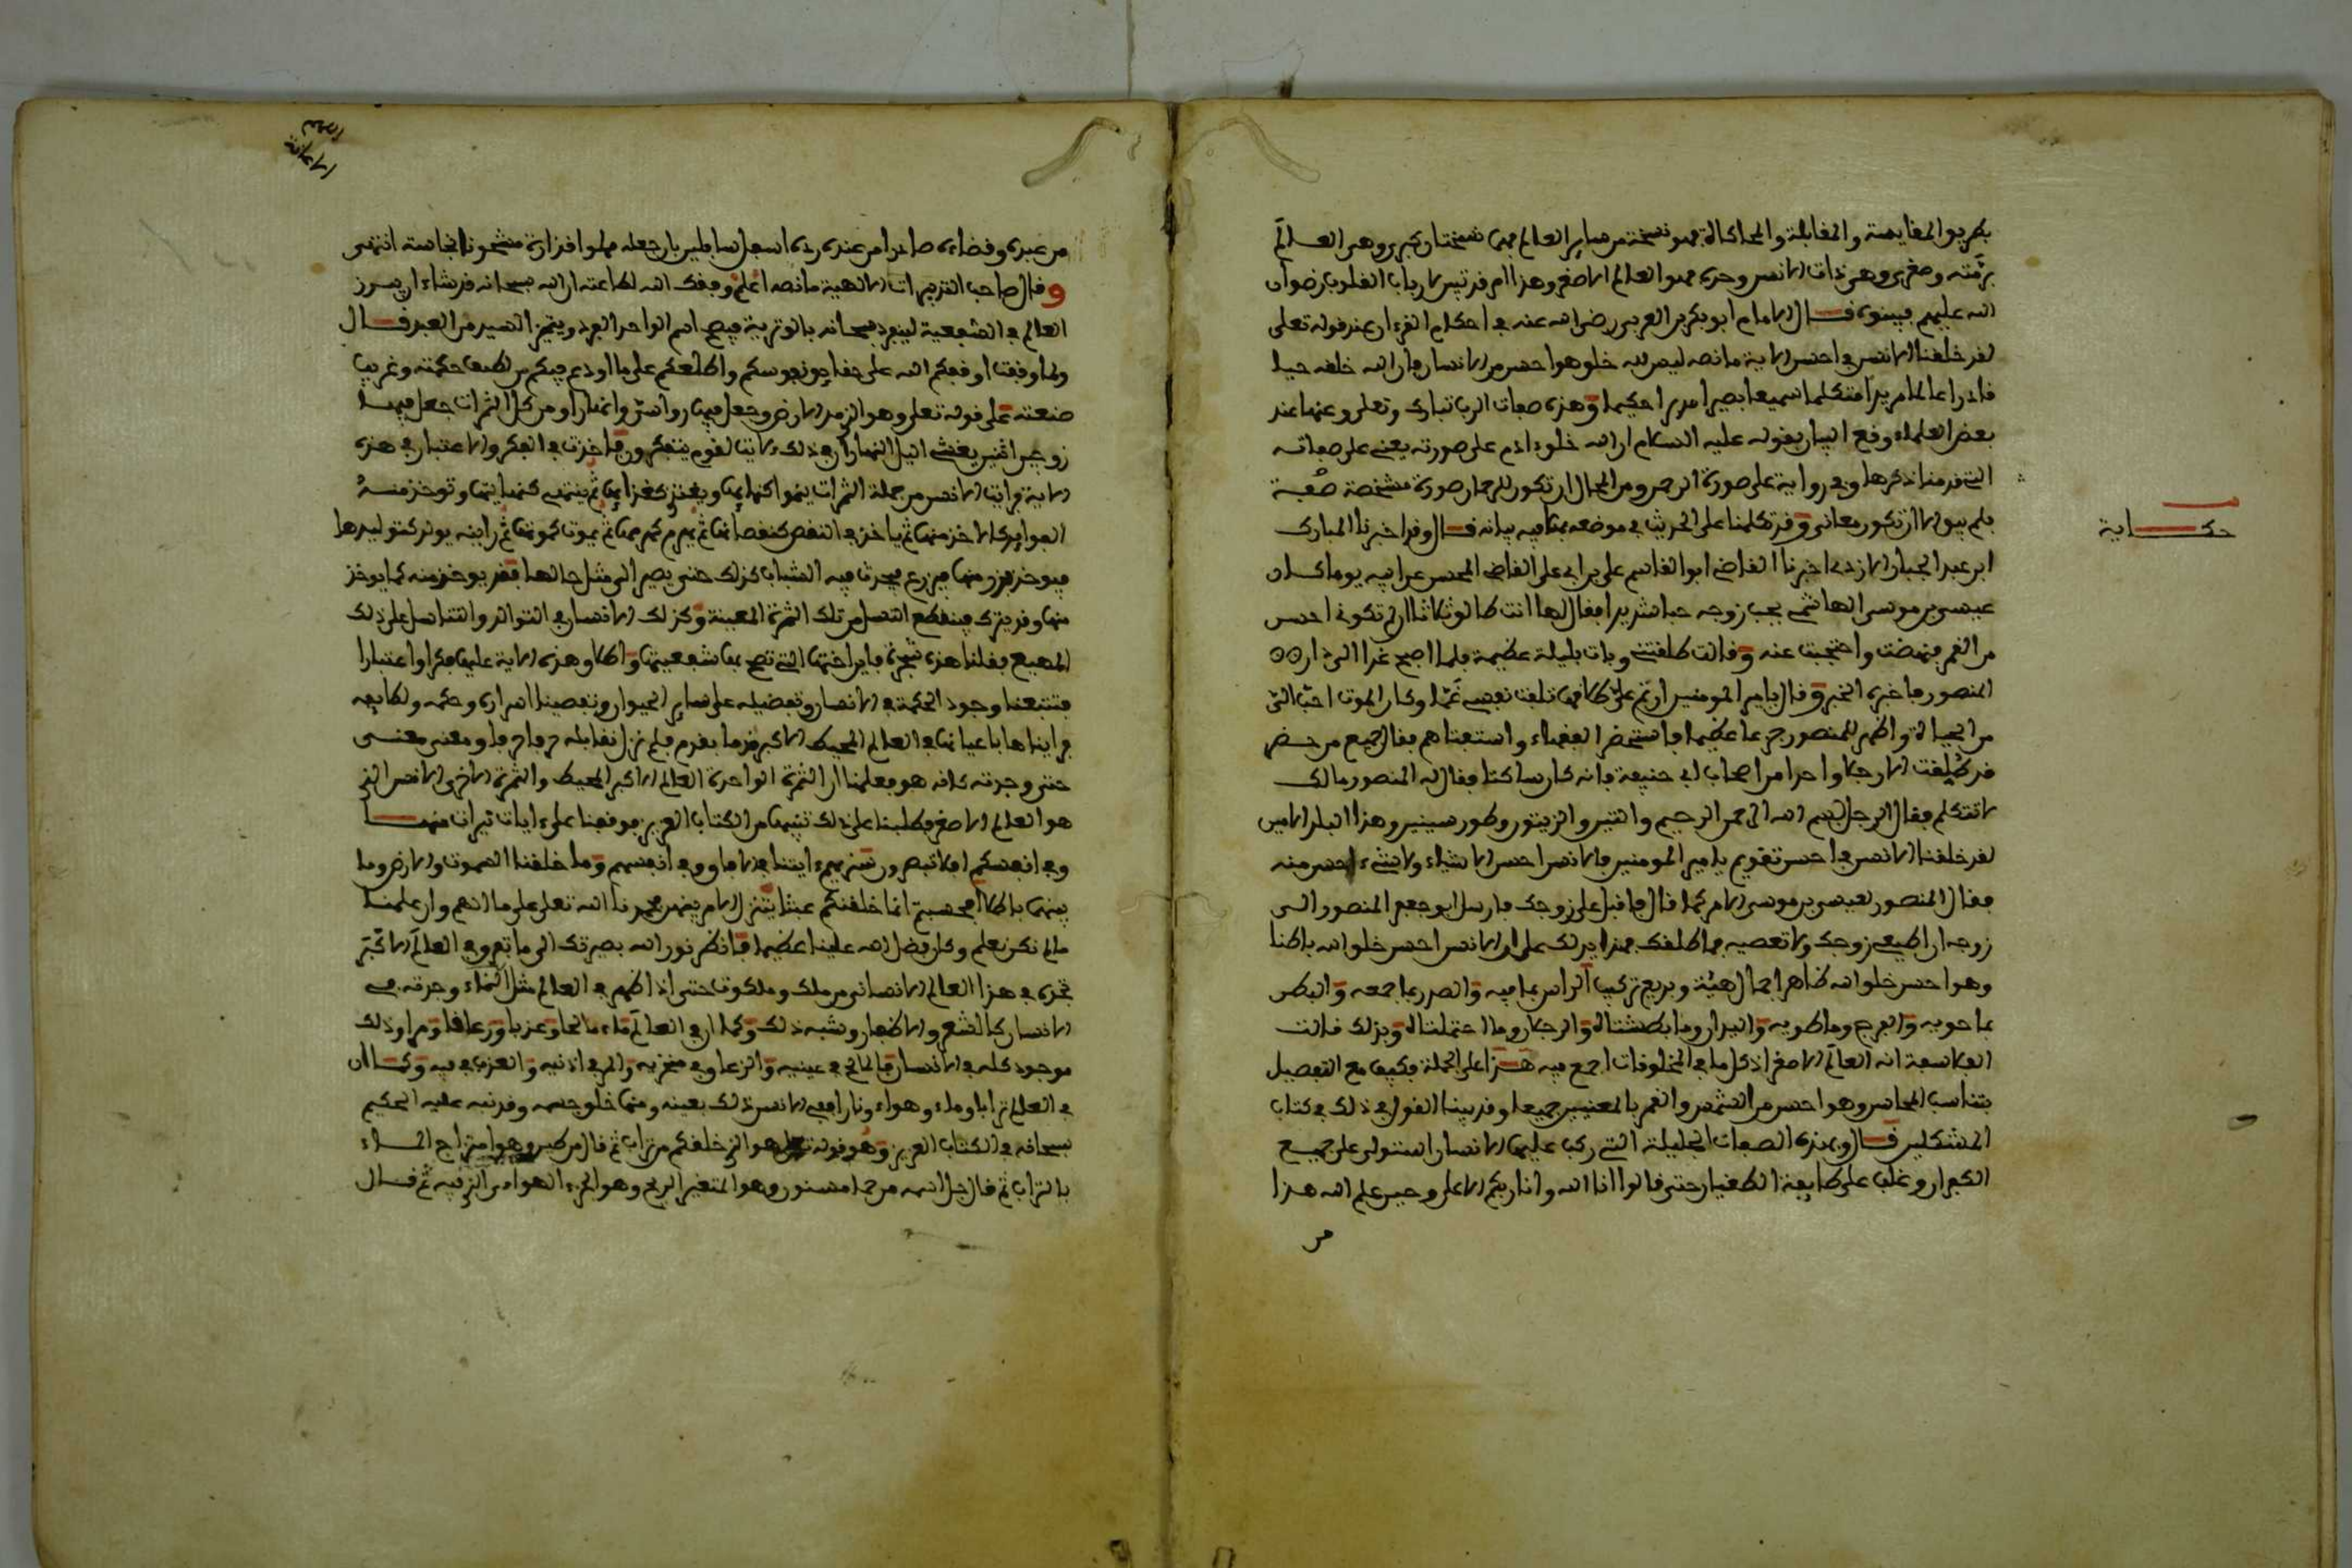 بطريق المقايسة والمقابلة والمحاكاة فهو نسخة من سائر العالم فهما نسختان كبرى وهي العالم
برمته وصغرى وهي ذات الانسن وحده فهو العالم الاصغر وهذا امر قد تبين لارباب القلوب رضوان
الله عليهم فبينوه قال الامام ابو بكر بن العربي رضي الله عنه في احكام القرءان عند قوله تعلى
لقد خلقنا الانسن في احسن الاية ما نصه ليس لله خلق هو احسن من الانسان فان الله خلقه حيا
قادرا عالما مريدا متكلما سميعا بصيرا مدبرا حكيما وهذه صفات الرب تبارك وتعلى وعنها عند
بعض العلماء وقع البيان بقوله عليه السلام ان الله خلق ءادم على صورته يعني على صفاته
التي قدمنا ذكرها وفي رواية على صورة الرحمن ومن المحال ان تكون للرحمن صورة مشخصة
فلم يبق الا ان تكون معاني وقد تكلمنا على الحديث في موضعه بما فيه بيانه قال وقد اخبرنا المبارك
حكاية
ابن عبد الجبار الازدي اخبرنا القاضي ابو القاسم علي بن ابي علي القاضي المحسن عن ابيه يوما كان
عيسى بن موسى الهاشمي يحب زوجه حبا شديدا فقال لها انت طالق ثلاثا ان لم تكوني احسن
من القمر فنهضت واحتجبت عنه وقالت طلقتني وبات بليلة عظيمة فلما اصبح غدا الى دار
المنصور فاخبره الخبر وقال يامير المومنين ان تم علي طلاقها تلفت نفسي غما وكان الموت احب الي
من الحياة واظهر للمنصور جزعا عظيما فاستحضر الفقهاء واستفتاهم فقال جميع من حضر
قد طلقت الا رجلا واحدا من اصحاب ابي حنيفة فانه كان ساكتا فقال له المنصور مالك
لا تتكلم فقال الرجل بسم الله الرحمن الرحيم والتين والزيتون وطور سينين وهذا البلد الامين
لقد خلقنا الانسن في احسن تقويم يامير المومنين فالانسن احسن الاشياء ولا شيء احسن منه
فقال المنصور لعيسى بن موسى الامر كما قال فاقبل على زوجك فارسل ابو جعفر المنصور الى
زوجه ان اطيعي زوجك ولا تعصيه فما طلقك فهذا يدلك على ان الانسن احسن خلق الله باطنا
وهو احسن خلق الله ظاهرا جمال هيئة وبديع تركيب الراس بما فيه والصدر بما جمعه والبطن
بما حويه والفرج وما طويه واليدان وما بطشتاه والرجلان وما احتملتاه وبذلك قالت
الفلاسفة انه العالم الاصغر اذ كل ما في المخلوقات اجمع فيه هذا على الجملة فكيف مع التفصيل
بتناسب المحاسن وهو احسن من الشمس والقمر بالمعنيين جميعا وقد بينا القول في ذلك في كتاب
المشكلين قال وبهذه الصفات الجليلة التي ركب عليها الانسان استولى على جميع
الكفران وغلب على طايفة الطغيان حتى قالوا انا الله وانا ربكم الاعلى وحين علم الله هذا
من
من عبده وقضاءه صادرا من عنده رده اسفل سافلين بان جعله مملوا قذارة مشحونا نجاسة انتهى
وقال صاحب التدبيرات الالهية ما نصه اعلم وفقك الله لطاعته ان الله سبحانه قد شاء ان يبرز
العالم في الشفعية لينفرد سبحانه بالوترية فيصح اسم الواحد الفرد ويتميز السيد من العبد قال
ولما وقفت اوقفكم الله على حقايق نفوسكم واطلعكم على ما اودع فيكم من لطيف حكمته وغريب
صنعته على قوله تعلى وهو الذي مد الارض وجعل فيها رواسي وانهارا ومن كل الثمرات جعل فيها
زوجين اثنين يغشي اليل النهار ان في ذلك لايات لقوم يتفكرون فاخذت في الفكر والاعتبار في هذه
الاية فرايت الانسن من جملة الثمرات ينموا كنمايها ويغتذي كغذايها ثم ينتهي كنهايتها وتوخذ منه
الفوايد كالاخذ منها ثم ياخذ في النقص كنقصانها ثم يهرم كهرمها ثم يموت كموتها ثم رايته يولد كتوليدها
فيوخذ بزر منها فيزرع فيحدث فيه الشباب كذلك حتى يصير الى مثل حالها فقد يوخذ منه كما يوخذ
منها وقد يترك فينقطع النسل من تلك الثمرة المعينة وكذلك الانسان في التوالد والتناسل على ذلك
المهيع فقلنا هذه شجرة فاين اختها التي تصح بها شفعيتها وطلاوهذه الاية عليها فكرا واعتبارا
فتتبعنا وجود الحكمة في الانسان وتفضيله على ساير الحيوان وتفصينا اسراره وحكمه ولطايفه
فرايناها باعيانها في العالم المحيط الاكبر قدما بقدم فلم نزل نقابله حرفا حرفا ومعنى معنى
حتى وجدته كانه هو فعلمنا ان الثمرة الواحدة العالم الاكبر المحيط والثمرة الاخرى الانسن الذي
هو العالم الاصغر فطلبنا على ذلك تنبيها من الكتاب العزيز فوقفنا على ءايات نيرات منها
وفي انفسكم افلا تبصرون سنريهم ءايتنا في الافاق وفي انفسهم وما خلقنا السموت والارض وما
بينهما باطلا افحسبتم انما خلقنكم عبثا يتنزل الامر بينهن فحمدنا الله تعلى على ما الهم وان علمنا
ما لم نكن نعلم وكان فضل الله علينا عظيما فانظر نور الله بصيرتك الى ما تفرق في العالم الاكبر
تجده في هذا العالم الانساني من ملك وملكوت حتى اذا ظهر في العالم مثل النماء وجدته في
الانسان كالشعر والاظفار وشبه ذلك وكما ان في العالم ماء مالحا وعذبا وزعاقا ومرا وذلك
موجود كله في الانسان فالمالح في عينيه والزعاق في منخريه والمر في اذنيه والعذب في فيه وكما ان
في العالم ترابا وماء وهواء ونارا ففي الانسن ذلك بعينه ومنها خلق جسمه وقد نبه عليه الحكيم
سبحانه في الكتاب العزيز وهو قوله تعلى هو الذي خلقكم من تراب ثم قال من طين وهو امتزاج الماء
بالتراب ثم قال جل اسمه من حما مسنون وهو المتغير الريح وهو الجزء الهوائي الذي فيه ثم قال